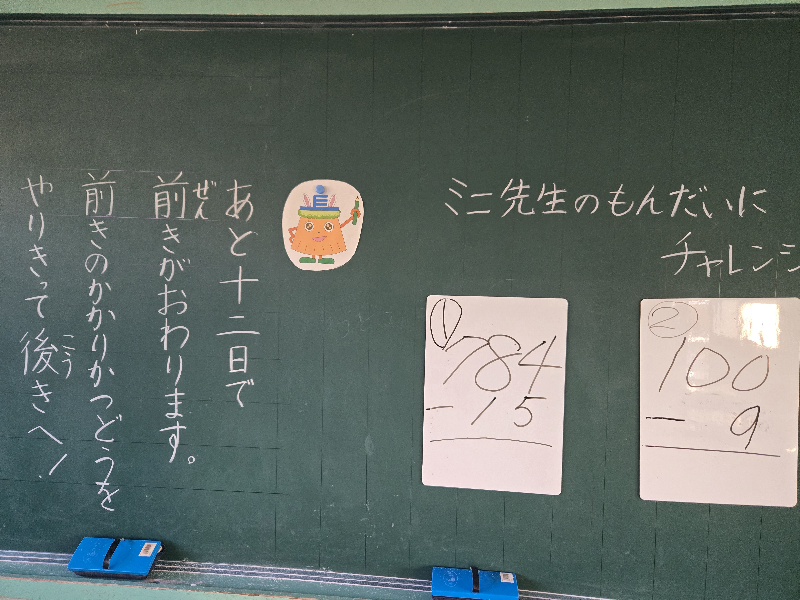 あと十二日で
前きがおわります。
ぜん
前きのかかりかつどうを
やりきって後きへ!
こう
ミニ先生のもんだいに
チャレンジ
①
784
-15
②
100
-9